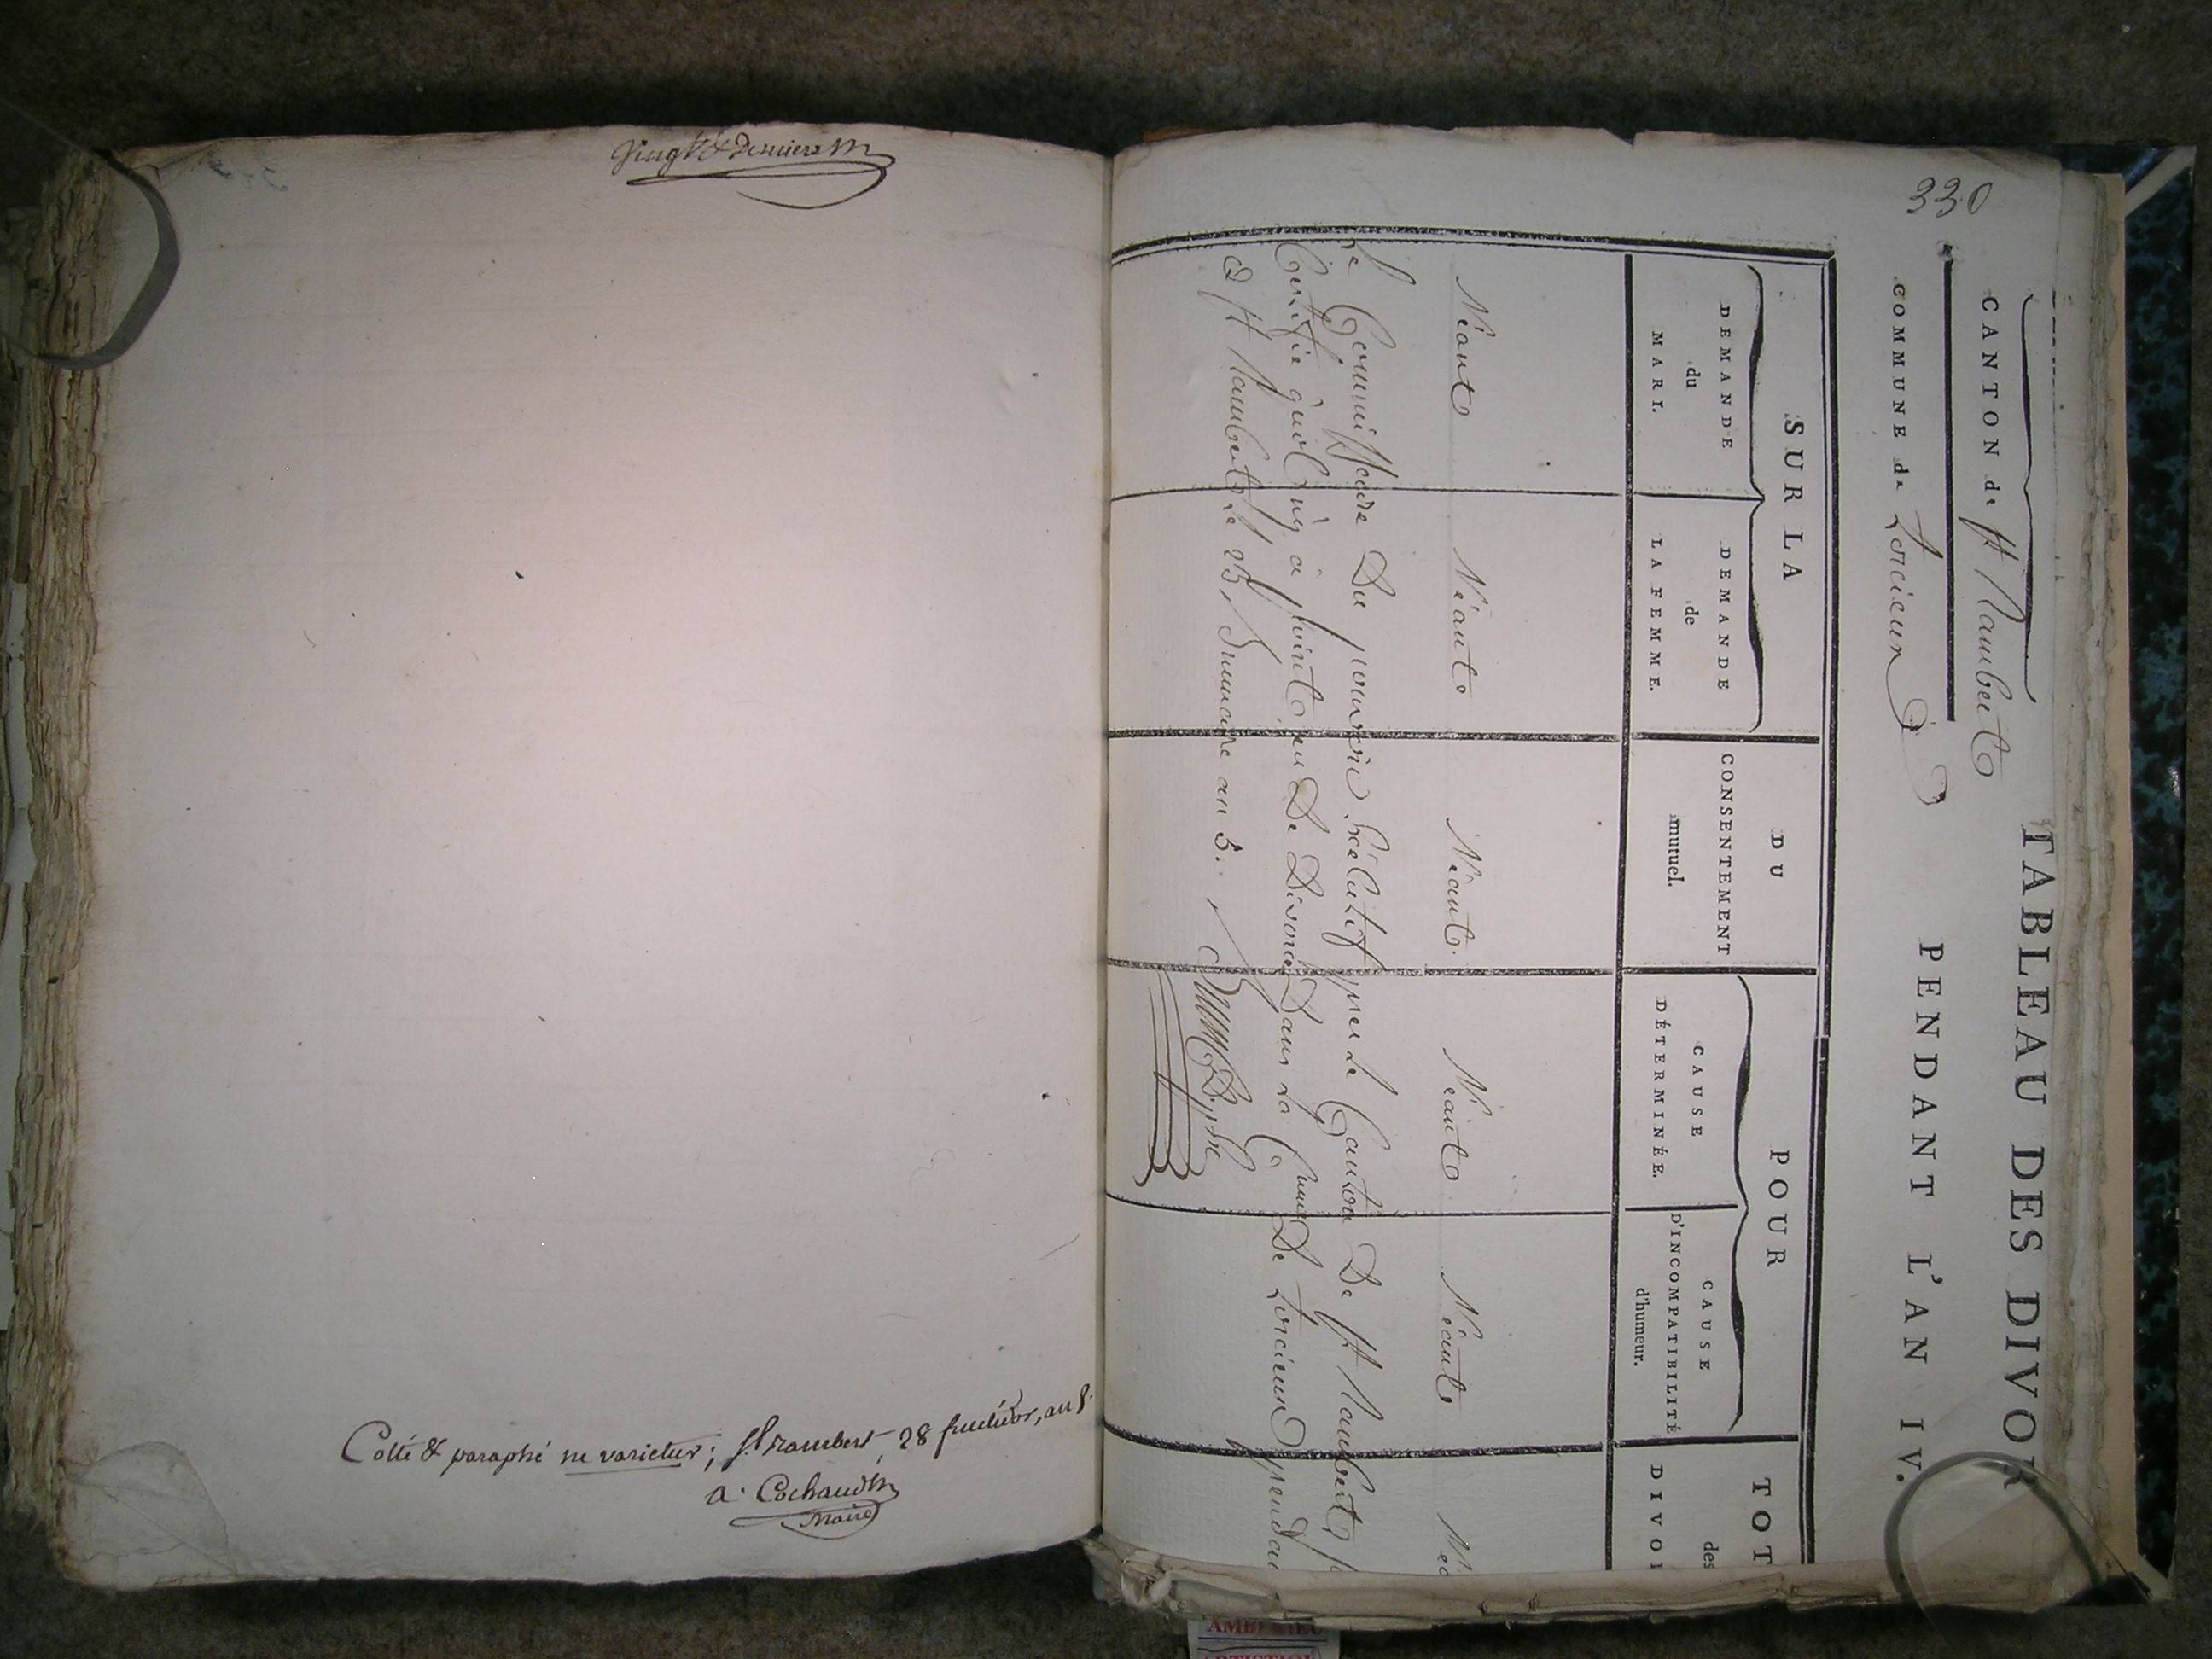 Vingt & derniere
Cotté & paraphé ne varietur; St Rambert 28 fructidor, an
a. Cochaud
Maire
330
TABLEAU DES DIVOR
CANTON de St Rambert
PENDANT L'AN IV.
COMMUNE de Torcieux
SUR LA
DU
POUR
TOT
DEMANDE
du
MARI.
DEMANDE
de
LA FEMME.
CONSENTEMENT
mutuel.
CAUSE
DÉTERMINÉE.
CAUSE
D'INCOMPATIBILITÉ
d'humeur.
des
DIVOR
Néant Néant Néant Néant Néant Né
Le Commissaire Du pouvoir Exécutif pres le Canton De St Rambert,
Certifie quol n'y à point eu De Divorce Dans la Cune De Torcieux pendan
a St Rambert le 25 Brumaire an 5.